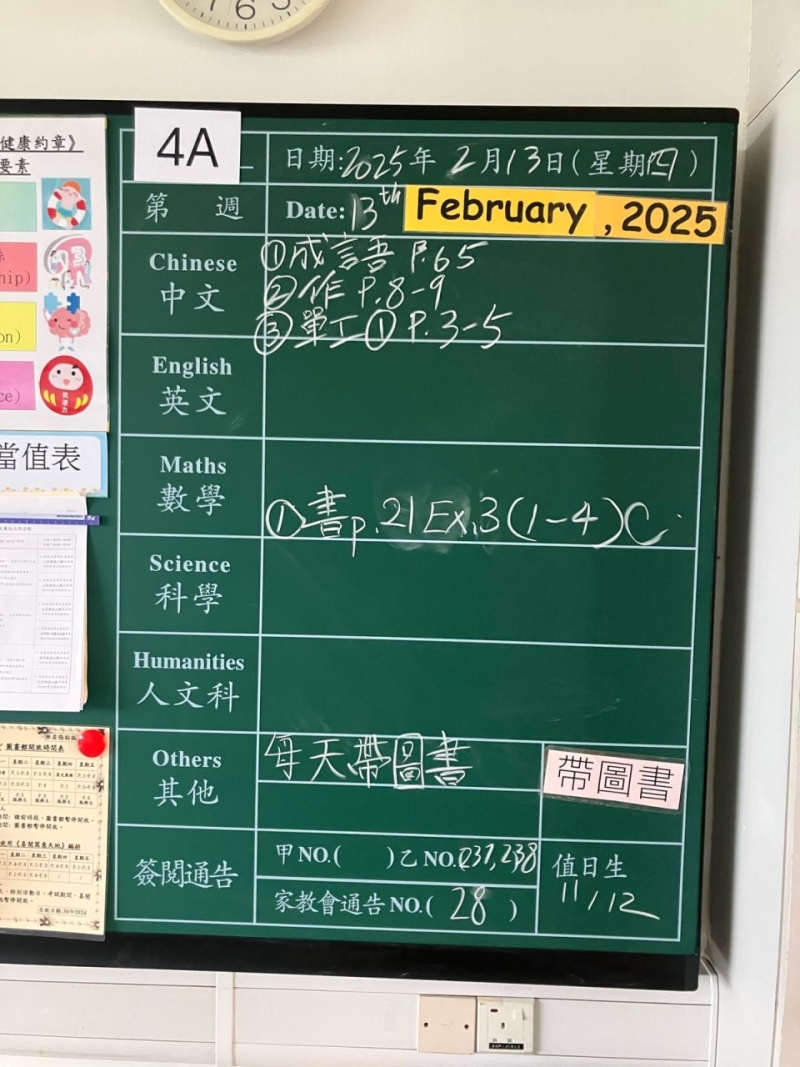 4A
日期:2025年2月13日(星期四)
第 週
Date: 13th February, 2025
Chinese
中文
①成言吾 P.65
②作 P.8-9
③單工① P.3-5
English
英文
Maths
數學
①書p.21Ex.3(1-4)C.
Science
科學
Humanities
人文科
Others
其他
每天帶圖書
帶圖書
簽閱通告
甲NO.( )乙NO.(237,238
家教會通告NO.( 28 )
值日生
11/12
健康約章》
要素
hip)
on)
ce)
當值表
圖書館開放時間表